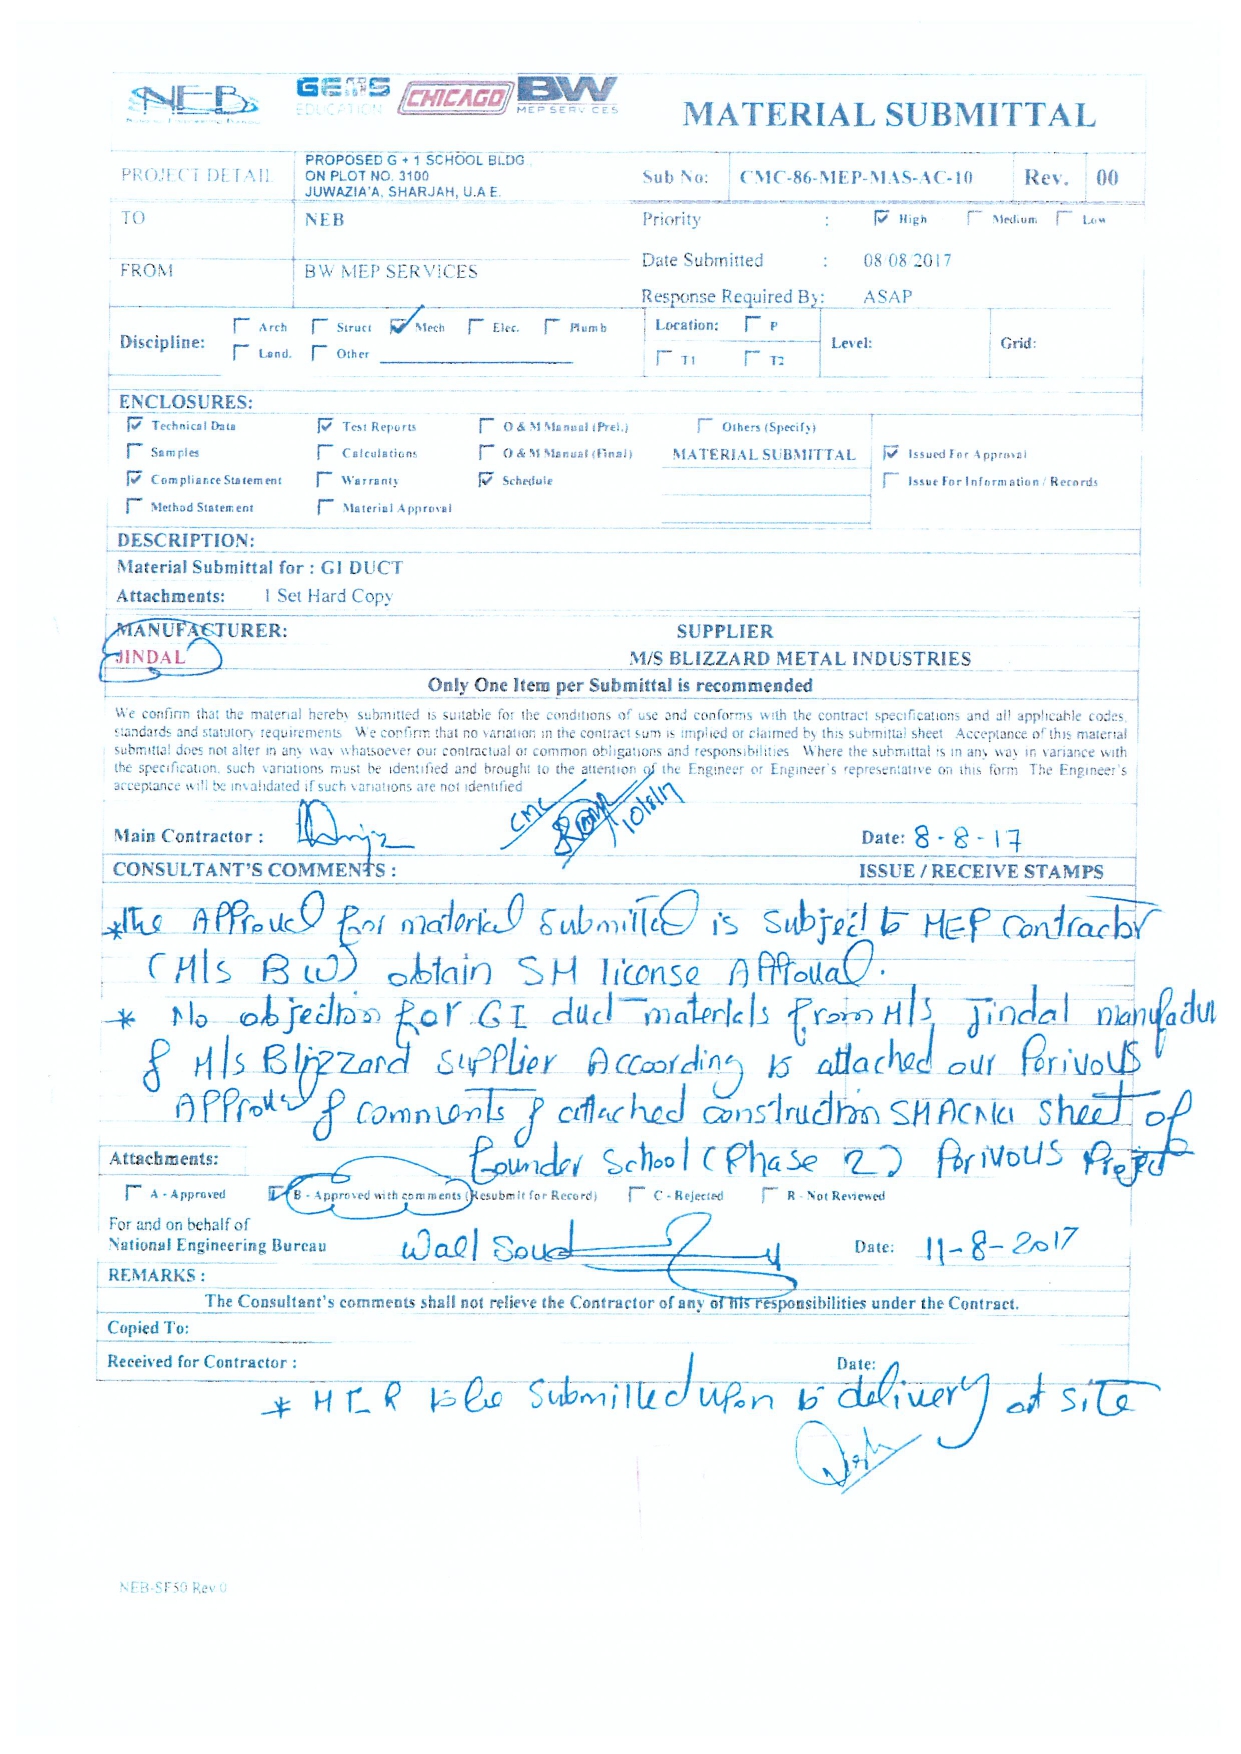 NEB GEMS EDUCATION CHICAGO BW MEP SERVICES
MATERIAL SUBMITTAL
PROJECT DETAIL
PROPOSED G + 1 SCHOOL BLDG
ON PLOT NO. 3100
JUWAZIA'A, SHARJAH, U.A.E.
Sub No: CMC-86-MEP-MAS-AC-10 Rev. 00
TO NEB
Priority : High Medium Low
FROM BW MEP SERVICES
Date Submitted : 08 08 2017
Response Required By: ASAP
Discipline: Arch Struct Mech Elec. Plumb
Land. Other
Location: P
T1 T2
Level: Grid:
ENCLOSURES:
Technical Data Test Reports O & M Manual (Prel.) Others (Specify)
Samples Calculations O & M Manual (Final) MATERIAL SUBMITTAL Issued For Approval
Compliance Statement Warranty Schedule Issue For Information / Records
Method Statement Material Approval
DESCRIPTION:
Material Submittal for : GI DUCT
Attachments: 1 Set Hard Copy
MANUFACTURER: SUPPLIER
JINDAL M/S BLIZZARD METAL INDUSTRIES
Only One Item per Submittal is recommended
We confirm that the material hereby submitted is suitable for the conditions of use and conforms with the contract specifications and all applicable codes,
standards and statutory requirements. We confirm that no variation in the contract sum is implied or claimed by this submittal sheet. Acceptance of this material
submittal does not alter in any way whatsoever our contractual or common obligations and responsibilities. Where the submittal is in any way in variance with
the specification, such variations must be identified and brought to the attention of the Engineer or Engineer's representative on this form. The Engineer's
acceptance will be invalidated if such variations are not identified
CMC 10/8/17
Main Contractor : Date: 8-8-17
CONSULTANT'S COMMENTS : ISSUE / RECEIVE STAMPS
* The Approval for material Submittal is Subject to MEP Contractor
(M/s BW) obtain SM license Approval.
* No objection for GI duct materials from M/s Jindal manufactur
& M/s Blizzard Supplier According to attached our Perivous
Approval & comments & attached construction SMACNA sheet of
Founder School (Phase 2) Perivous Project
Attachments:
A - Approved B - Approved with comments (Resubmit for Record) C - Rejected R - Not Reviewed
For and on behalf of
National Engineering Bureau Wael Soud Date: 11-8-2017
REMARKS :
The Consultant's comments shall not relieve the Contractor of any of his responsibilities under the Contract.
Copied To:
Received for Contractor : Date:
* MIR to be Submitted upon to delivery at site
NEB-SF50 Rev.0